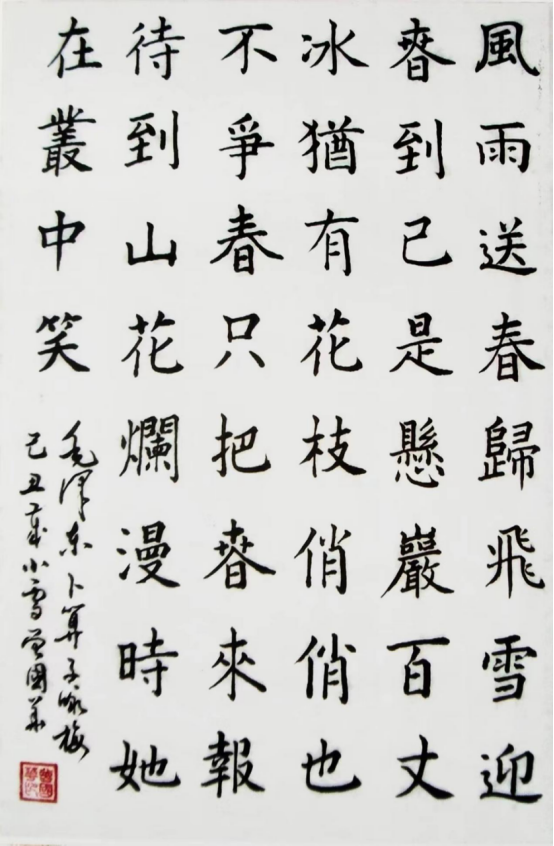 風雨送春歸飛雪迎
春到已是懸巖百丈
冰猶有花枝俏俏也
不爭春只把春來報
待到山花爛漫時她
在叢中笑
毛澤東卜算子咏梅
己丑年小雪曾國華